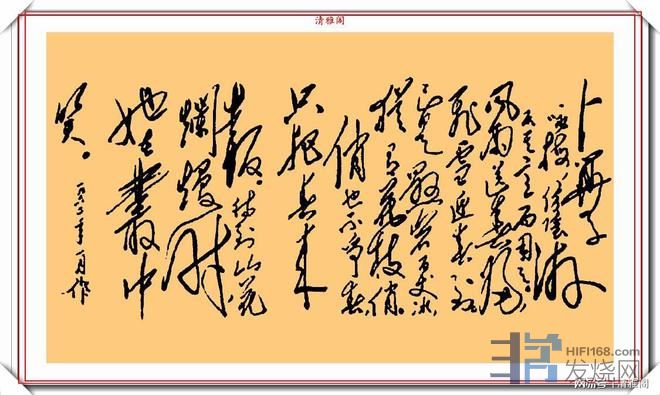 清雅阁
卜算子
咏梅
游
反其意而用之
风雨送春归
飞雪迎春到
已是悬崖百丈冰
犹有花枝俏
俏也不争春
只把春来
报。待到山花
烂熳时
她在叢中
笑。
HIFI168.com
发烧网